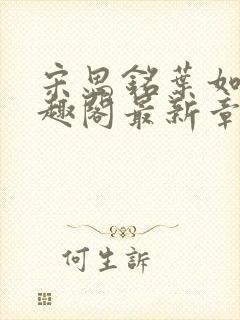 宋思铭葉如
趣閣最新章
何生訴